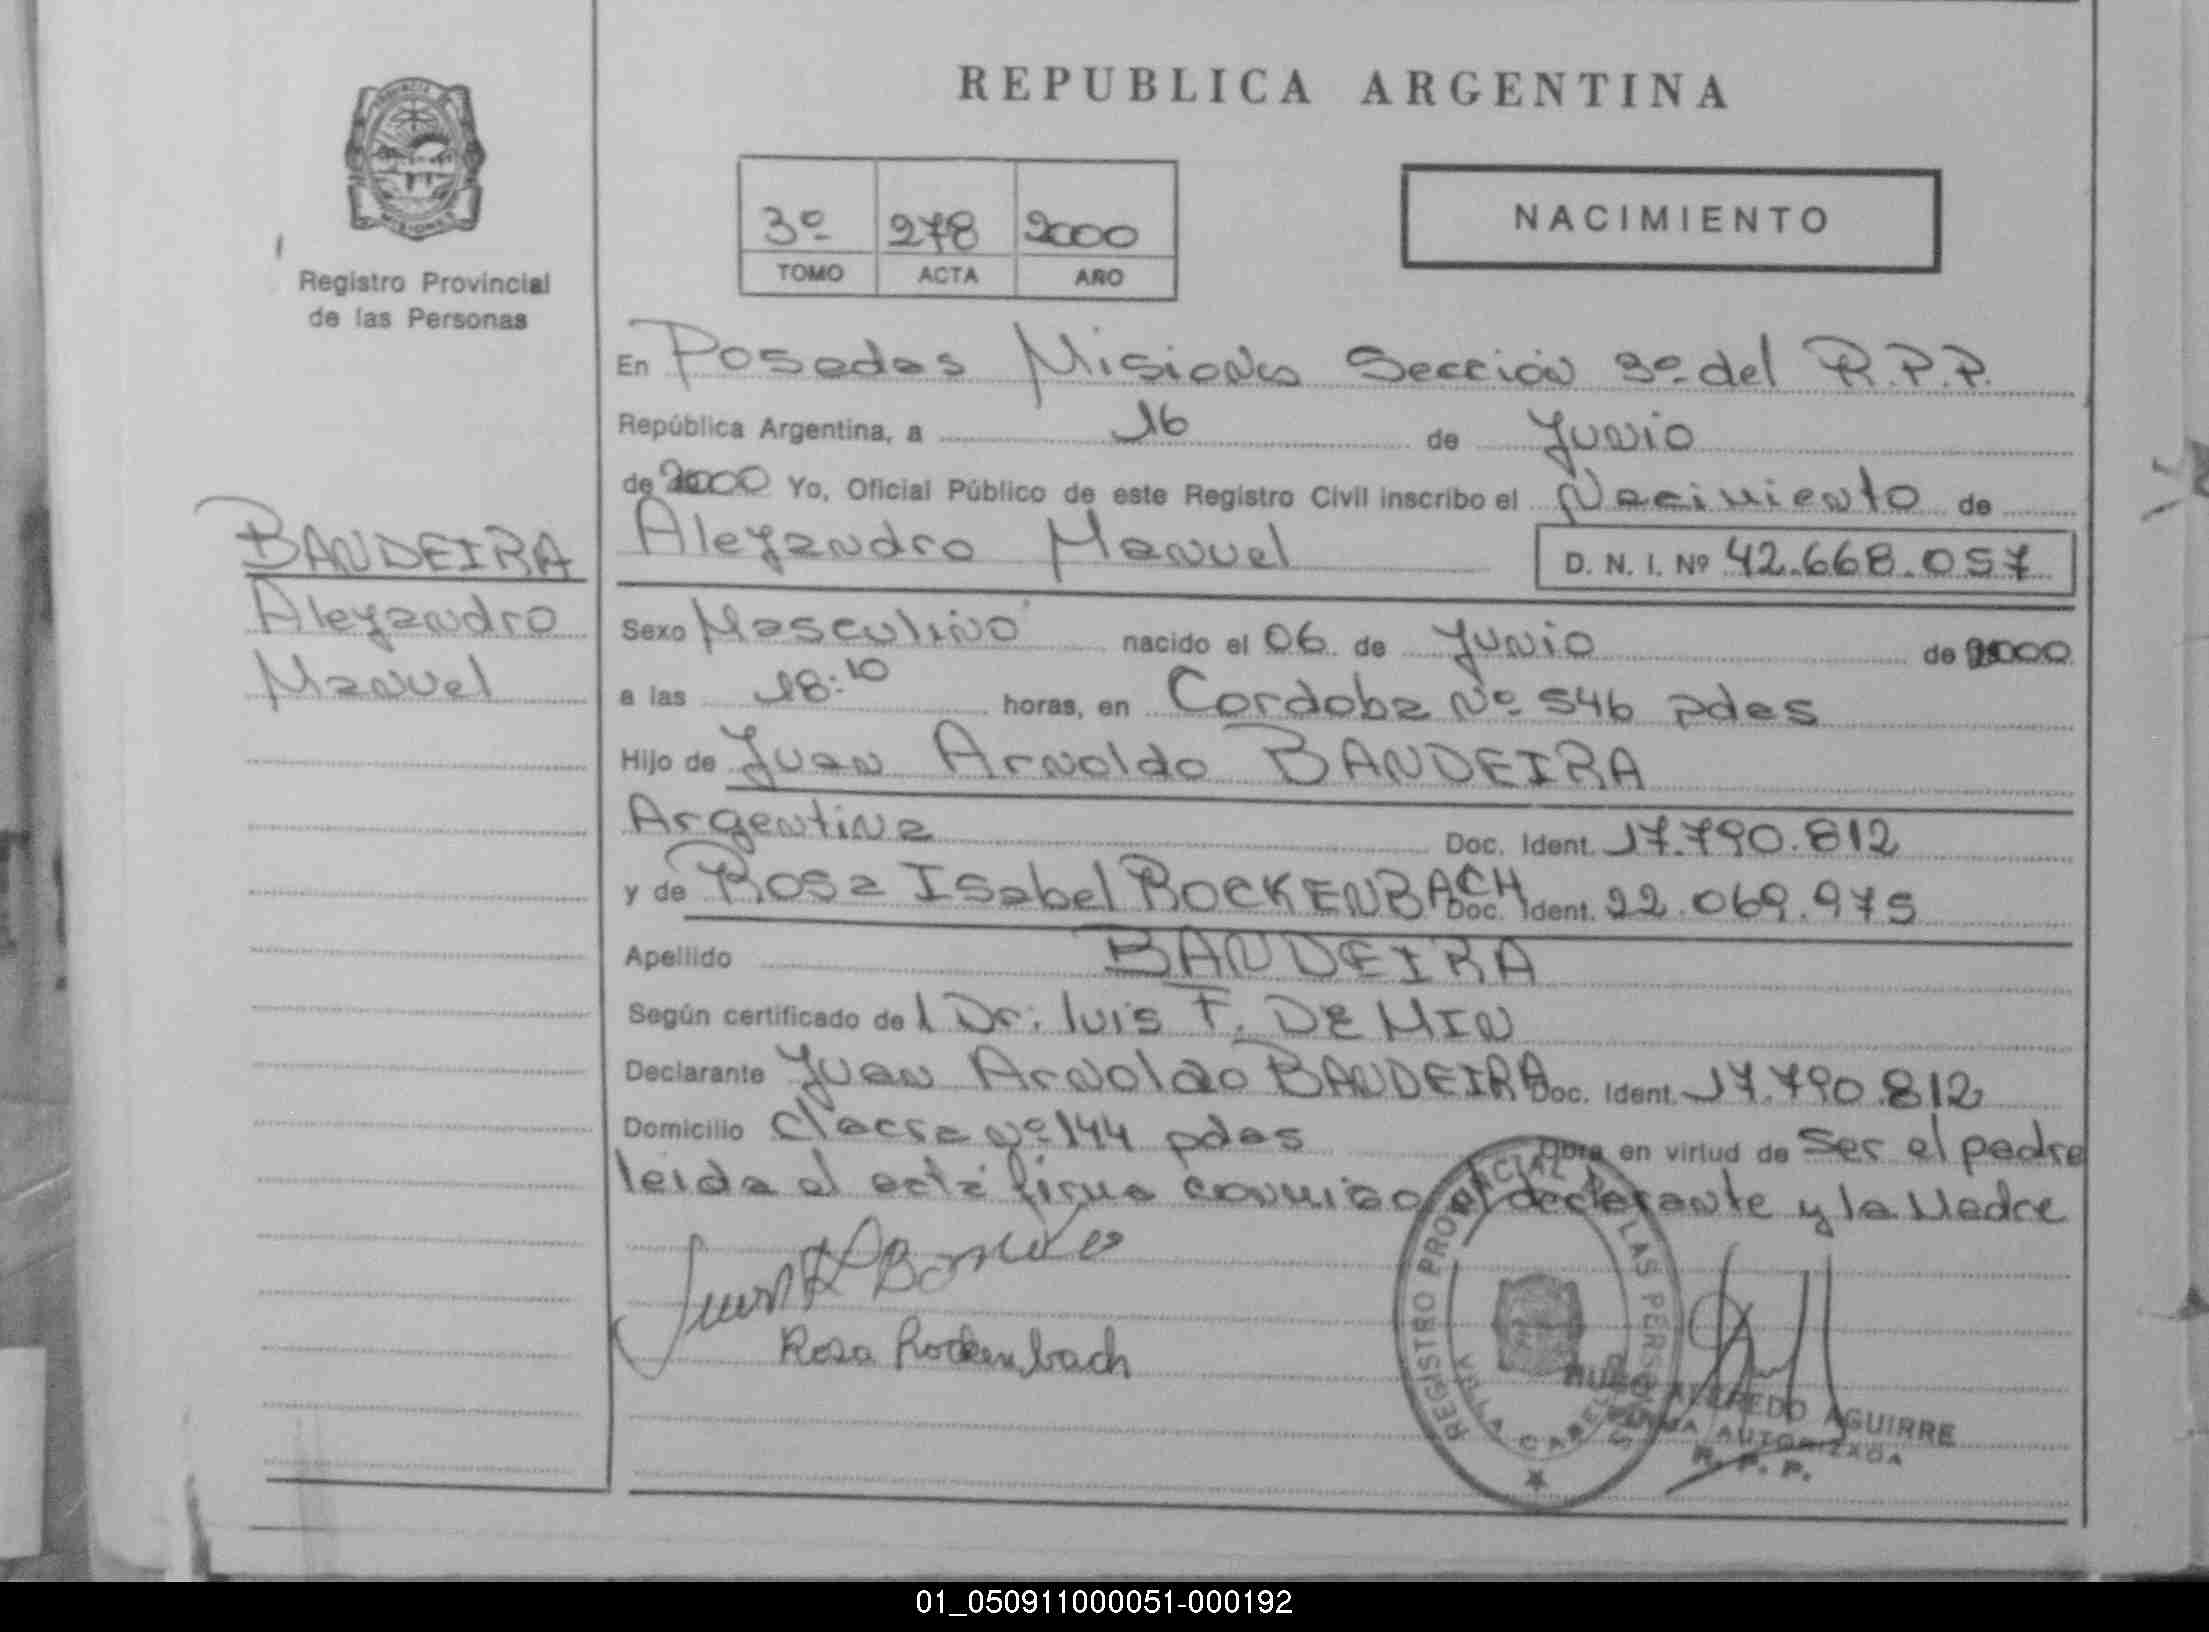 REPUBLICA ARGENTINA
PROVINCIA DE
MISIONES
Registro Provincial
de las Personas
3º 278 2000
TOMO ACTA AÑO
NACIMIENTO
En Posadas Misiones Sección 3º del R.P.P.
República Argentina, a 16 de Junio
de 2000 Yo, Oficial Público de este Registro Civil inscribo el Nacimiento de
Alejandro Manuel D. N. I. Nº 42.668.057
BANDEIRA
Alejandro
Manuel
Sexo Masculino nacido el 06 de Junio de 2000
a las 18:10 horas, en Cordoba Nº 546 pdas
Hijo de Juan Arnoldo BANDEIRA
Argentina Doc. Ident. 17.790.812
y de Rosa Isabel ROCKENBACH Doc. Ident. 22.069.975
Apellido BANDEIRA
Según certificado de l Dr: luis F. DE MIN
Declarante Juan Arnoldo BANDEIRA Doc. Ident. 17.790.812
Domicilio Nº 144 pdas Obra en virtud de ser el padre
leida el acta firma conmigo el declarante y la Madre
Rosa Rockenbach
REGISTRO PROVINCIAL DE LAS PERSONAS
VILLA CABELLO
HUGO ALFREDO AGUIRRE
FIRMA AUTORIZADA
R. P. P.
01_050911000051-000192